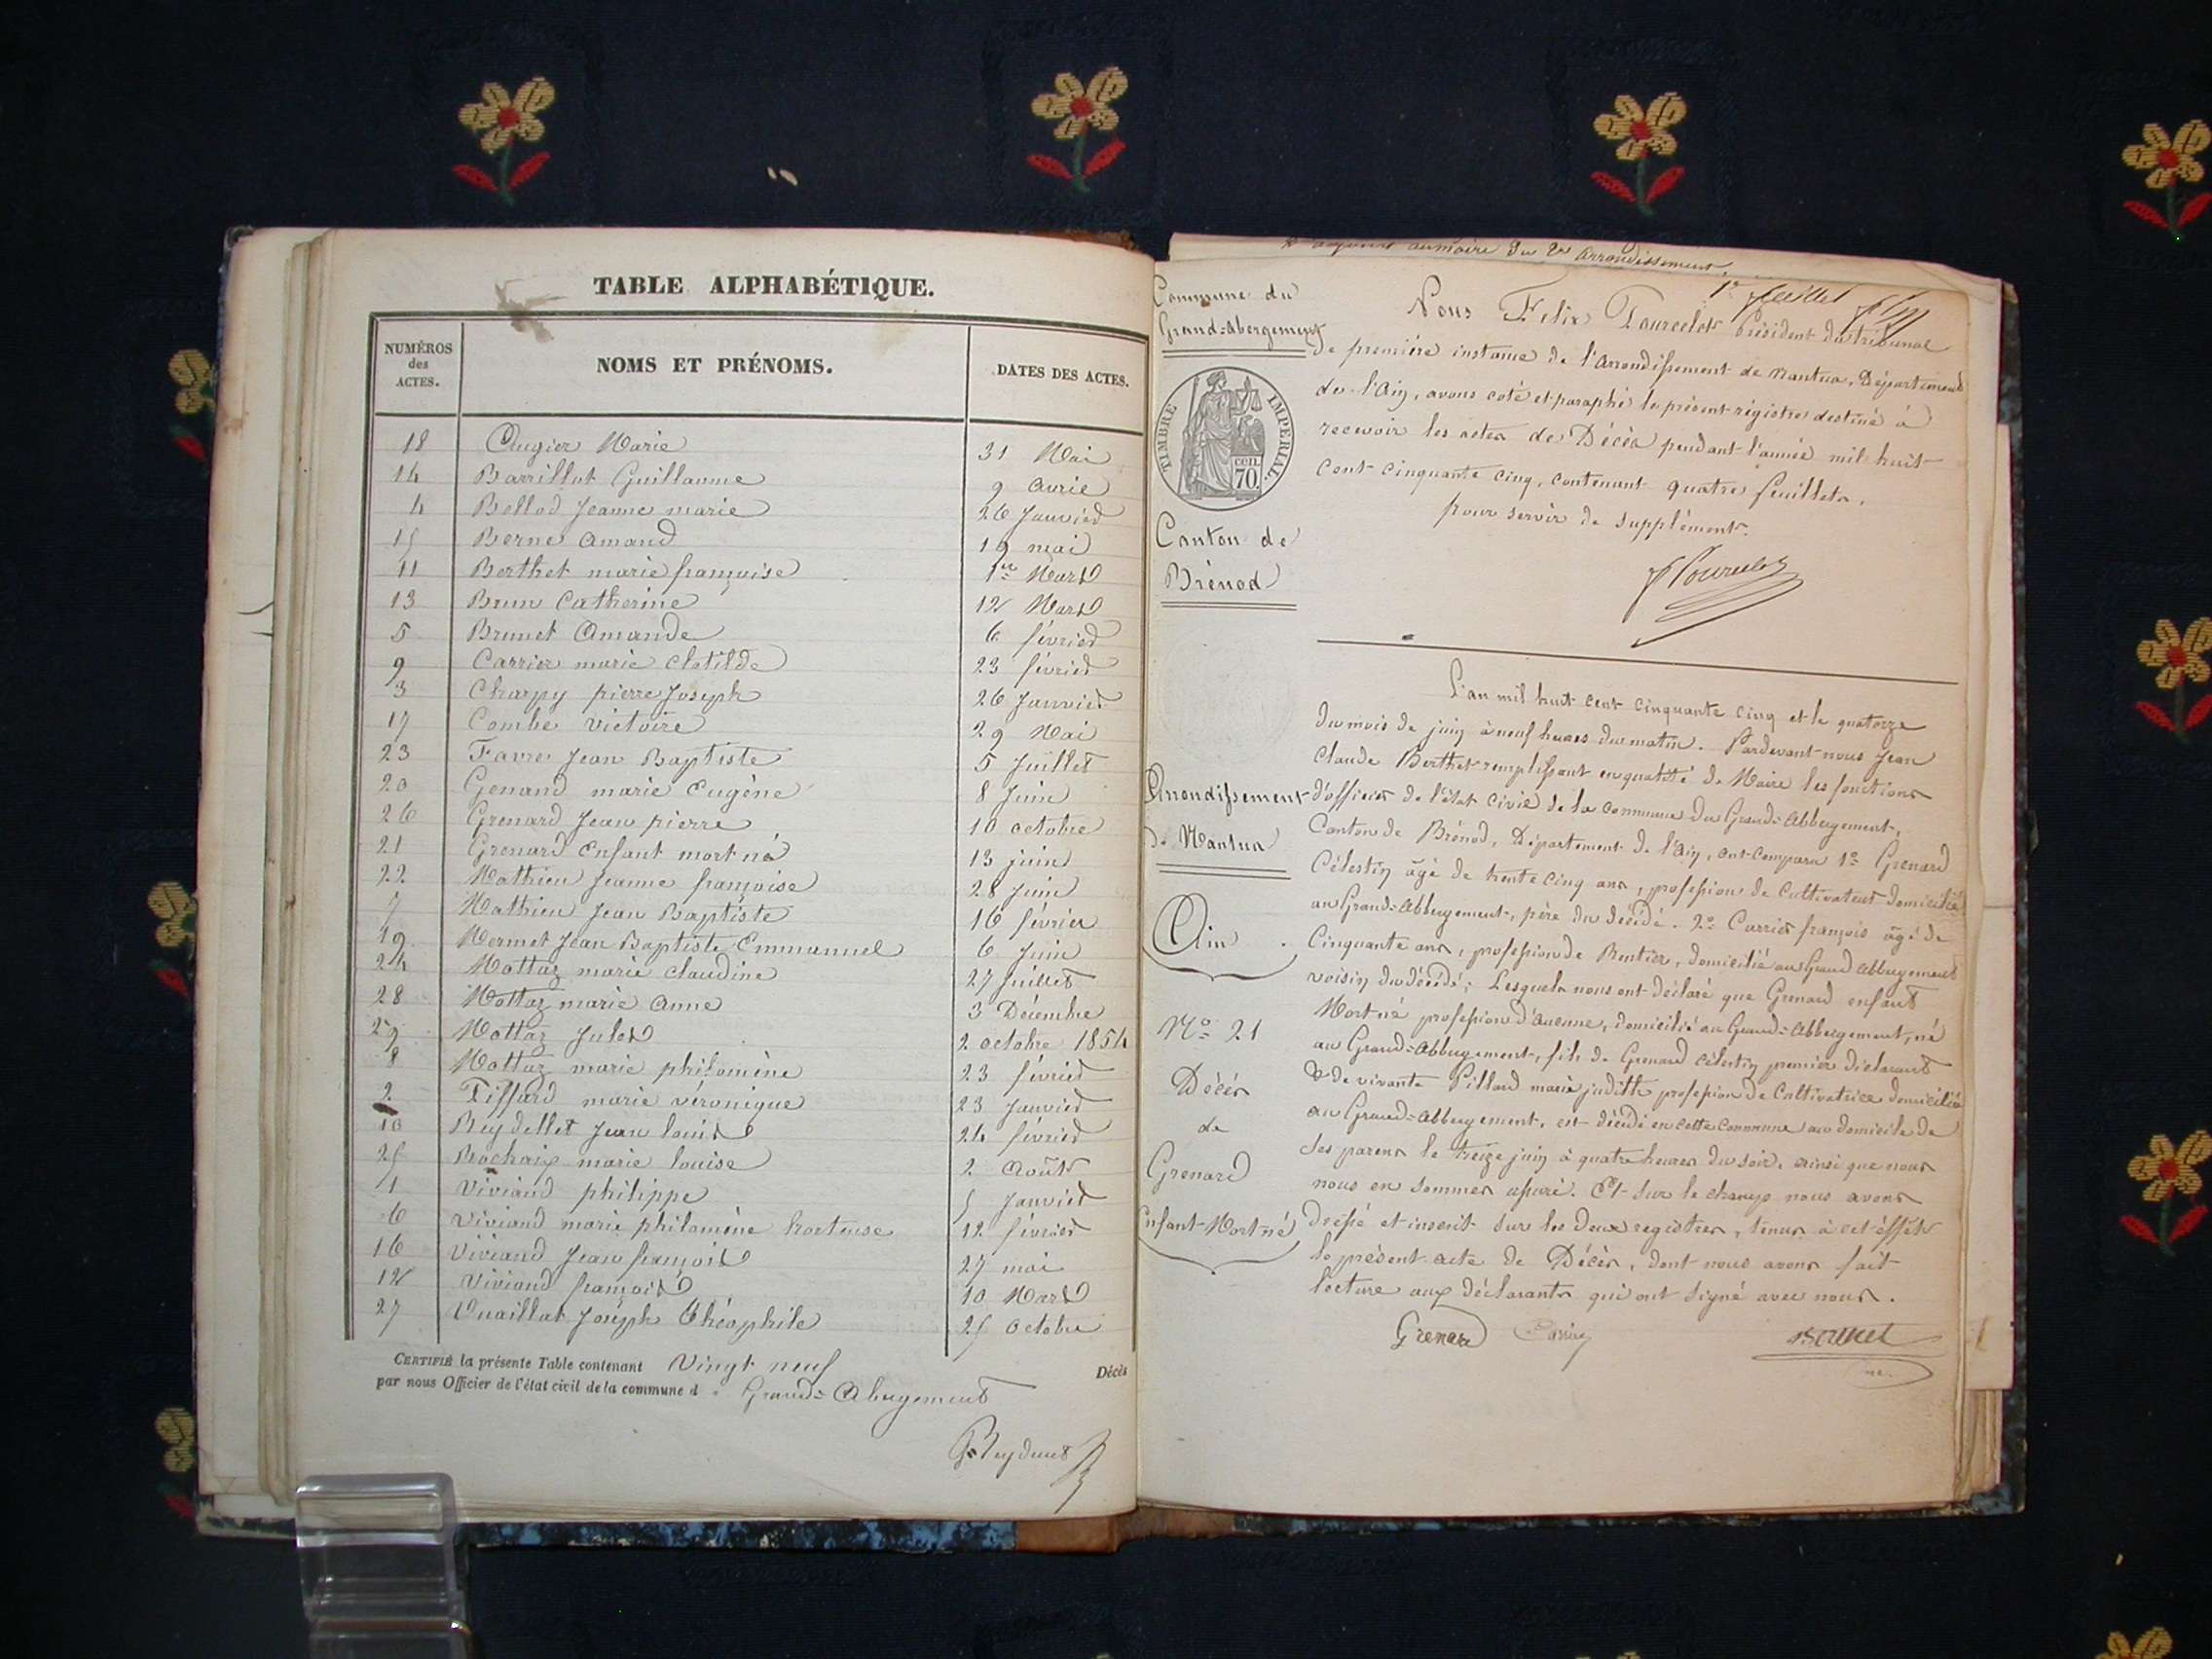 TABLE ALPHABÉTIQUE.
NUMÉROS des ACTES.
NOMS ET PRÉNOMS.
DATES DES ACTES.
18 Cugier Marie 31 Mai
14 Barrillot Guillaume 9 avril
4 Bellod Jeanne marie 26 Janvier
15 Berne amand 19 mai
11 Berthet marie françoise 1er Mars
13 Brun Catherine 12 Mars
5 Brunet Amande 6 février
9 Carrier marie clotilde 23 février
3 Charpy pierre Joseph 26 Janvier
17 Combe victoire 29 Mai
23 Favre Jean Baptiste 5 Juillet
20 Genand marie Eugène 8 Juin
26 Grenard Jean pierre 10 octobre
21 Grenard Enfant mort né 13 juin
22 Mathieu Jeanne françoise 28 Juin
7 Mathieu Jean Baptiste 16 février
19 Mermet Jean Baptiste Emmanuel 6 Juin
24 Mottaz marie claudine 27 Juillet
28 Mottaz marie anne 3 Décembre
29 Mottaz Jules 2 octobre 1854
8 Mottaz marie philomène 23 février
2 Piffard marie véronique 23 Janvier
10 Reydellet Jean louis 24 février
25 Rochaix marie louise 2 Août
1 Viviand philippe 5 Janvier
6 Viviand marie philomène hortense 12 février
16 Viviand Jean françois 27 mai
12 Viviand françois 10 Mars
27 Vuaillat Joseph Théophile 25 octobre
CERTIFIÉ la présente Table contenant Vingt neuf Décès
par nous Officier de l'état civil de la commune d Grand=Abergement
aumaire du 2e arrondissement,
1er feuillet
Commune du
Grand=abergement
TIMBRE IMPÉRIAL.
CEN. 70.
Canton de
Brénod
Arrondissement
de Nantua
Ain
No 21
Décès
de
Grenard
Enfant Mort né
Nous Felix Pourcelot Président du tribunal
de première instance de l'arrondissement de Nantua, Département
de l'Ain, avons coté et paraphé le présent régistre destiné à
recevoir les actes de Décès pendant l'année mil huit
cent cinquante cinq, contenant quatre feuillets,
pour servir de supplément.
Pourcelot
L'an mil huit cent cinquante cinq et le quatorze
du mois de juin à neuf heures du matin. Pardevant nous Jean
Claude Berthet remplissant en qualité de Maire les fonctions
d'officier de l'état civil de la commune du Grand=Abbergement,
Canton de Brénod, Département de l'Ain, ont comparu 1o Grenard
Célestin âgé de trente cinq ans, profession de cultivateur domicilié
au Grand=Abbergement, père du décédé. 2o Carrier françois âgé de
Cinquante ans, profession de Rentier, domicilié au Grand Abbergement
voisin du décédé; Lesquels nous ont déclaré que Grenard enfant
Mort né profession d'aucune, domicilié au Grand=Abbergement, né
au Grand=Abbergement, fils de Grenard célestin premier déclarant
& de vivante Pillard marie judith profession de Cultivatrice domiciliée
au Grand=Abbergement, est décédé en cette commune au domicile de
ses parens le treize juin à quatre heures du soir, ainsi que nous
nous en sommes assuré. Et sur le champ nous avons
dressé et inscrit sur les deux registres, tenus à cet éffet
le présent acte de Décès, dont nous avons fait
lecture aux déclarants qui ont signé avec nous.
Grenard Carrier